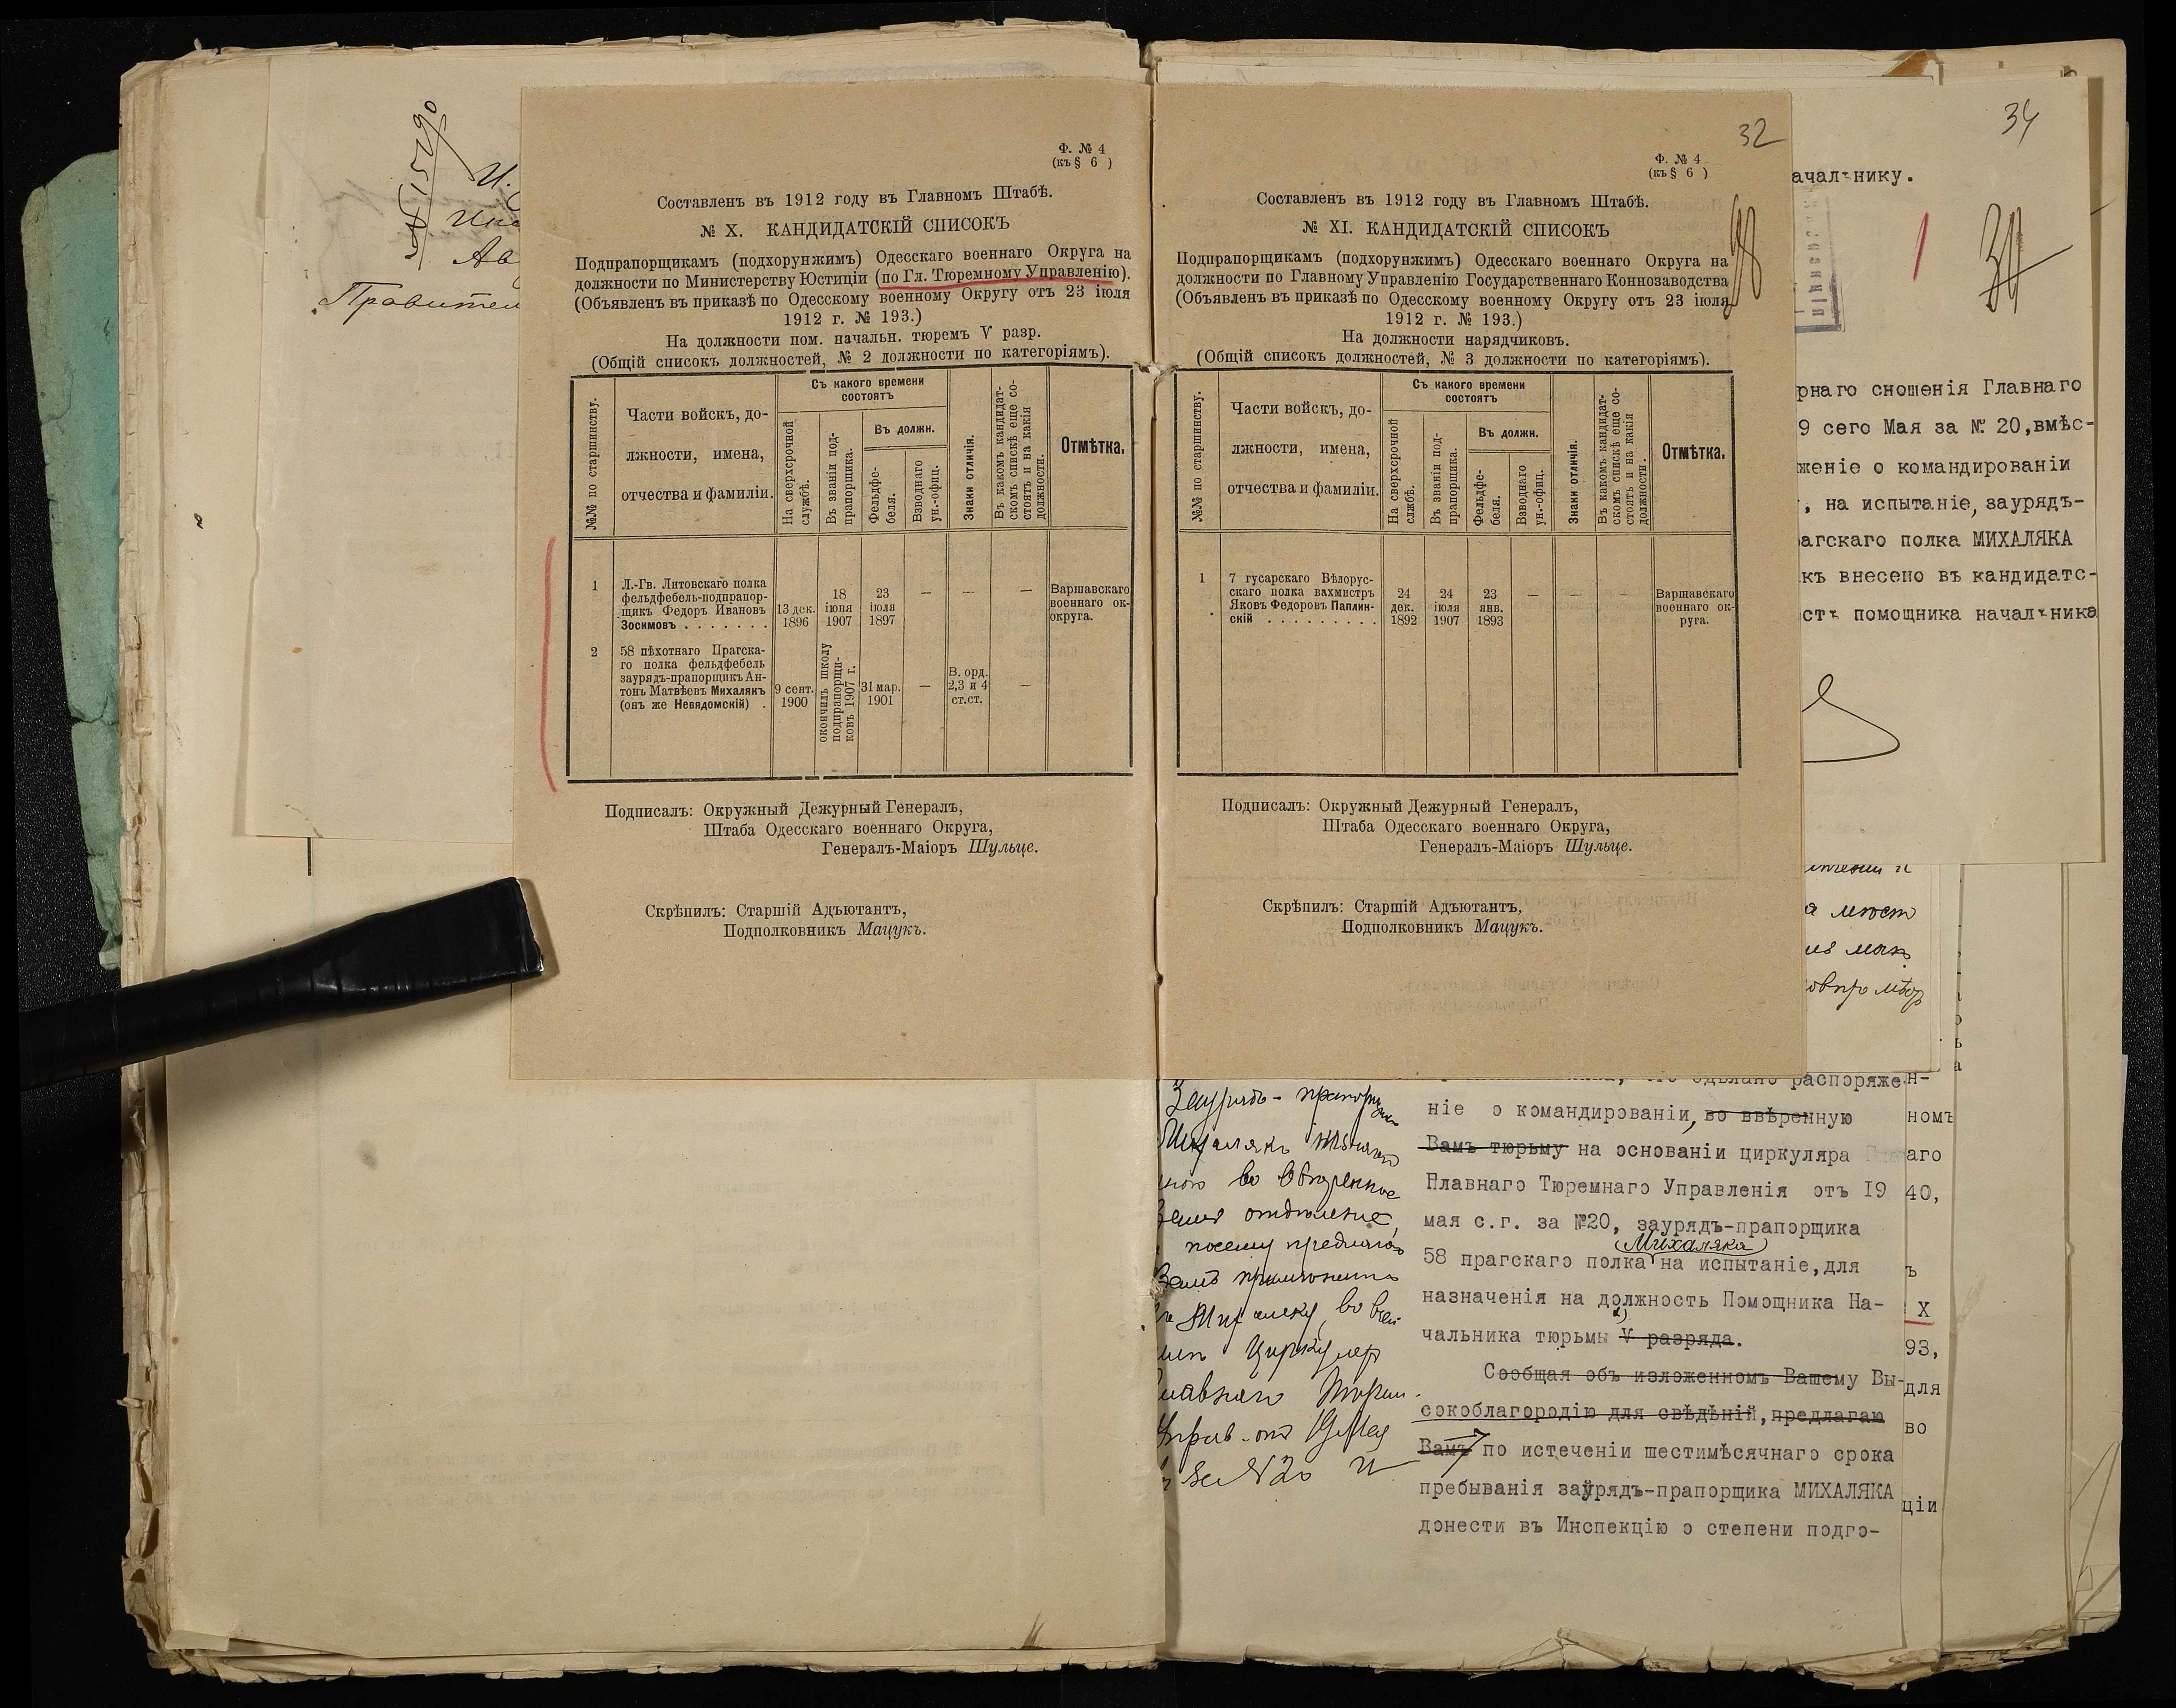 Правител
Ф. № 4
(къ § 6 )
Составленъ въ 1912 году въ Главномъ Штабѣ.
№ X. КАНДИДАТСКІЙ СПИСОКЪ
Подпрапорщикамъ (подхорунжимъ) Одесскаго военнаго Округа на
должности по Министерству Юстиціи (по Гл. Тюремному Управленію).
(Объявленъ въ приказѣ по Одесскому военному Округу отъ 23 іюля
1912 г. № 193.)
На должности пом. начальн. тюремъ V разр.
(Общій списокъ должностей, № 2 должности по категоріямъ).
№№ по старшинству.
Части войскъ, до-
лжности, имена,
отчества и фамиліи.
Съ какого времени
состоятъ
На сверхсрочной
службѣ.
Въ званіи под-
прапорщика.
Въ должн.
Фельдфе-
беля.
Взводнаго
ун.-офиц.
Знаки отличія.
Въ какомъ кандидат-
скомъ спискѣ еще со-
стоятъ и на какія
должности.
Отмѣтка.
1
Л.-Гв. Литовскаго полка
фельдфебель-подпрапор-
щикъ Федоръ Ивановъ
Зосимовъ . . . . . . .
13 дек.
1896
18
іюня
1907
23
іюля
1897
—
—
—
Варшавскаго
военнаго ок-
округа.
2
58 пѣхотнаго Прагска-
го полка фельдфебель
заурядъ-прапорщикъ Ан-
тонъ Матвѣевъ Михалякъ
(онъ же Невядомскій) .
9 сент.
1900
окончилъ школу
подпрапорщи-
ковъ 1907 г.
31 мар.
1901
—
В. орд.
2,3 и 4
ст.ст.
—
Подписалъ: Окружный Дежурный Генералъ,
Штаба Одесскаго военнаго Округа,
Генералъ-Маіоръ Шульце.
Скрѣпилъ: Старшій Адъютантъ,
Подполковникъ Мацукъ.
32
Ф. № 4
(къ § 6 )
Составленъ въ 1912 году въ Главномъ Штабѣ.
№ XI. КАНДИДАТСКІЙ СПИСОКЪ
Подпрапорщикамъ (подхорунжимъ) Одесскаго военнаго Округа на
должности по Главному Управленію Государственнаго Коннозаводства
(Объявленъ въ приказѣ по Одесскому военному Округу отъ 23 іюля
1912 г. № 193.)
На должности нарядчиковъ.
(Общій списокъ должностей, № 3 должности по категоріямъ).
№№ по старшинству.
Части войскъ, до-
лжности, имена,
отчества и фамиліи.
Съ какого времени
состоятъ
На сверхсрочной
слжбѣ.
Въ званіи под-
прапорщика.
Въ должн.
Фельдфе-
беля.
Взводнаго
ун.-офиц.
Знаки отличія.
Въ какомъ кандидат-
скомъ спискѣ еще со-
стоятъ и на какія
должности.
Отмѣтка.
1
7 гусарскаго Бѣлорус-
скаго полка вахмистръ
Яковъ Федоровъ Паплин-
скій . . . . . . . . .
24
дек.
1892
24
іюля
1907
23
янв.
1893
—
—
—
Варшавскаго
военнаго ок-
руга.
Подписалъ: Окружный Дежурный Генералъ,
Штаба Одесскаго военнаго Округа,
Генералъ-Маіоръ Шульце.
Скрѣпилъ: Старшій Адъютантъ,
Подполковникъ Мацукъ.
34
ачальнику.
рнаго сношенія Главнаго
9 сего Мая за № 20,вмѣс-
женіе о командированіи
, на испытаніе, заурядъ-
рагскаго полка МИХАЛЯКА
къ внесено въ кандидатс-
сть помощника начальника
распоряже
ніе о командированіи, во ввѣренную
Вамъ тюрьму на основаніи циркуляра
Главнаго Тюремнаго Управленія отъ I9
мая с.г. за №20, заурядъ-прапорщика
Михаляка
58 прагскаго полка на испытаніе,для
назначенія на должность Помощника На-
чальника тюрьмы V разряда.
Сообщая объ изложенномъ Вашему Вы-
сокоблагородію для свѣдѣній, предлагаю
Вамъ по истеченіи шестимѣсячнаго срока
пребыванія заурядъ-прапорщика МИХАЛЯКА
донести въ Инспекцію о степени подго-
н-
номъ
аго
40,
ъ
X
93,
для
во
ціи